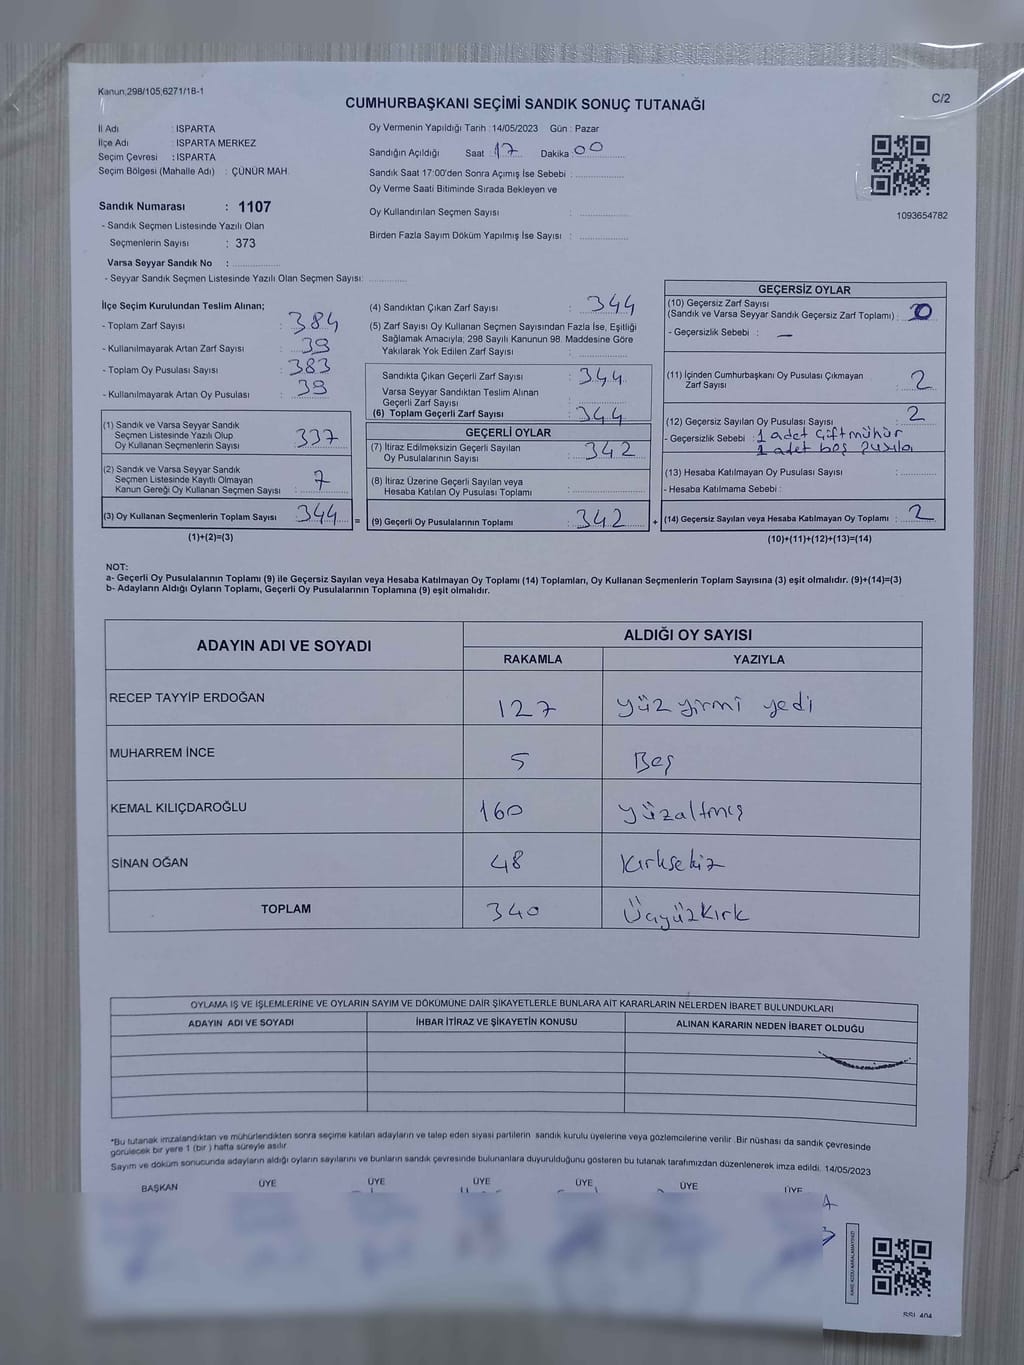 Kanun,298/105,6271/18-1
CUMHURBAŞKANI SEÇİMİ SANDIK SONUÇ TUTANAĞI
C/2
İl Adı : ISPARTA
İlçe Adı : ISPARTA MERKEZ
Seçim Çevresi : ISPARTA
Seçim Bölgesi (Mahalle Adı) : ÇÜNÜR MAH.
Sandık Numarası : 1107
- Sandık Seçmen Listesinde Yazılı Olan
Seçmenlerin Sayısı : 373
Varsa Seyyar Sandık No :
- Seyyar Sandık Seçmen Listesinde Yazılı Olan Seçmen Sayısı:
Oy Vermenin Yapıldığı Tarih : 14/05/2023 Gün : Pazar
Sandığın Açıldığı Saat : 17 Dakika : 00
Sandık Saat 17:00'den Sonra Açımış İse Sebebi :
Oy Verme Saati Bitiminde Sırada Bekleyen ve
Oy Kullandırılan Seçmen Sayısı :
Birden Fazla Sayım Döküm Yapılmış İse Sayısı :
1093654782
İlçe Seçim Kurulundan Teslim Alınan;
- Toplam Zarf Sayısı : 384
- Kullanılmayarak Artan Zarf Sayısı : 39
- Toplam Oy Pusulası Sayısı : 383
- Kullanılmayarak Artan Oy Pusulası : 39
(1) Sandık ve Varsa Seyyar Sandık
Seçmen Listesinde Yazılı Olup
Oy Kullanan Seçmenlerin Sayısı : 337
(2) Sandık ve Varsa Seyyar Sandık
Seçmen Listesinde Kayıtlı Olmayan
Kanun Gereği Oy Kullanan Seçmen Sayısı : 7
(3) Oy Kullanan Seçmenlerin Toplam Sayısı : 344
(1)+(2)=(3)
(4) Sandıktan Çıkan Zarf Sayısı : 344
(5) Zarf Sayısı Oy Kullanan Seçmen Sayısından Fazla İse, Eşitliği
Sağlamak Amacıyla; 298 Sayılı Kanunun 98. Maddesine Göre
Yakılarak Yok Edilen Zarf Sayısı :
Sandıkta Çıkan Geçerli Zarf Sayısı : 344
Varsa Seyyar Sandıktan Teslim Alınan
Geçerli Zarf Sayısı :
(6) Toplam Geçerli Zarf Sayısı : 344
GEÇERLİ OYLAR
(7) İtiraz Edilmeksizin Geçerli Sayılan
Oy Pusulalarının Sayısı : 342
(8) İtiraz Üzerine Geçerli Sayılan veya
Hesaba Katılan Oy Pusulası Toplamı :
= (9) Geçerli Oy Pusulalarının Toplamı : 342 +
GEÇERSİZ OYLAR
(10) Geçersiz Zarf Sayısı
(Sandık ve Varsa Seyyar Sandık Geçersiz Zarf Toplamı) : 0
- Geçersizlik Sebebi : —
(11) İçinden Cumhurbaşkanı Oy Pusulası Çıkmayan
Zarf Sayısı : 2
(12) Geçersiz Sayılan Oy Pusulası Sayısı : 2
- Geçersizlik Sebebi : 1 adet çift mühür
1 adet boş pusula
(13) Hesaba Katılmayan Oy Pusulası Sayısı :
- Hesaba Katılmama Sebebi :
(14) Geçersiz Sayılan veya Hesaba Katılmayan Oy Toplamı : 2
(10)+(11)+(12)+(13)=(14)
NOT:
a- Geçerli Oy Pusulalarının Toplamı (9) ile Geçersiz Sayılan veya Hesaba Katılmayan Oy Toplamı (14) Toplamları, Oy Kullanan Seçmenlerin Toplam Sayısına (3) eşit olmalıdır. (9)+(14)=(3)
b- Adayların Aldığı Oyların Toplamı, Geçerli Oy Pusulalarının Toplamına (9) eşit olmalıdır.
ADAYIN ADI VE SOYADI
ALDIĞI OY SAYISI
RAKAMLA YAZIYLA
RECEP TAYYİP ERDOĞAN 127 yüz yirmi yedi
MUHARREM İNCE 5 Beş
KEMAL KILIÇDAROĞLU 160 yüzaltmış
SİNAN OĞAN 48 Kırksekiz
TOPLAM 340 ÜçyüzKırk
OYLAMA İŞ VE İŞLEMLERİNE VE OYLARIN SAYIM VE DÖKÜMÜNE DAİR ŞİKAYETLERLE BUNLARA AİT KARARLARIN NELERDEN İBARET BULUNDUKLARI
ADAYIN ADI VE SOYADI İHBAR İTİRAZ VE ŞİKAYETİN KONUSU ALINAN KARARIN NEDEN İBARET OLDUĞU
*Bu tutanak imzalandıktan ve mühürlendikten sonra seçime katılan adayların ve talep eden siyasi partilerin sandık kurulu üyelerine veya gözlemcilerine verilir. Bir nüshası da sandık çevresinde
görülecek bir yere 1 (bir) hafta süreyle asılır.
Sayım ve döküm sonucunda adayların aldığı oyların sayılarını ve bunların sandık çevresinde bulunanlara duyurulduğunu gösteren bu tutanak tarafımızdan düzenlenerek imza edildi. 14/05/2023
BAŞKAN ÜYE ÜYE ÜYE ÜYE ÜYE ÜYE